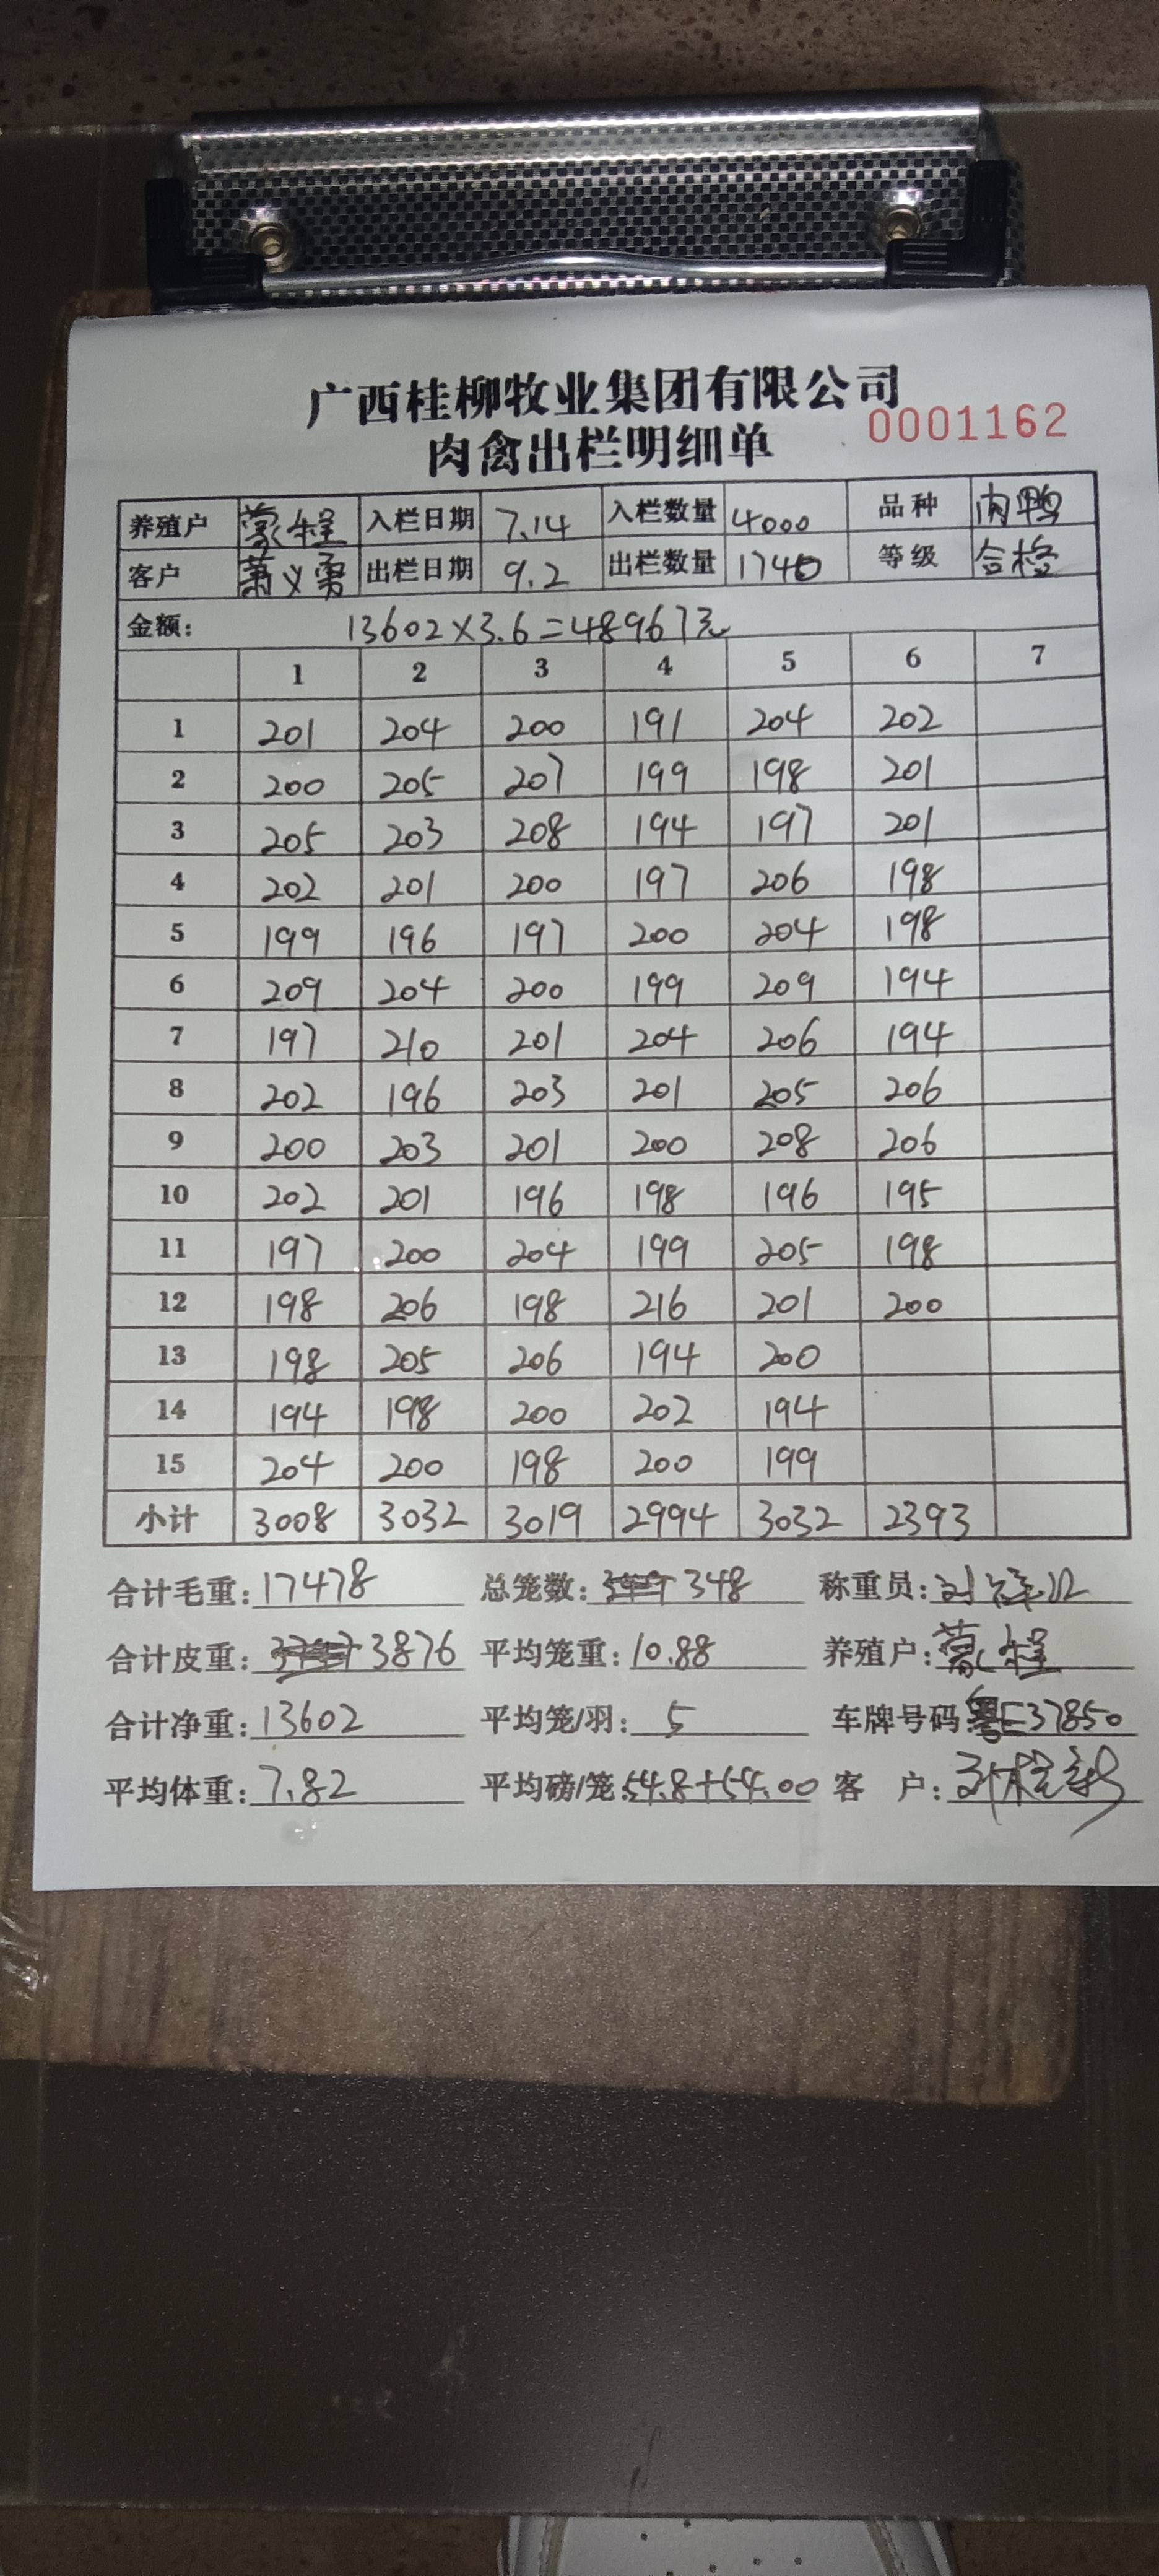 广西桂柳牧业集团有限公司
肉禽出栏明细单 0001162
养殖户 蒙程 入栏日期 7.14 入栏数量 4000 品种 肉鸭
客户 萧义勇 出栏日期 9.2 出栏数量 1740 等级 合格
金额: 13602×3.6=48967元
1 2 3 4 5 6 7
1 201 204 200 191 204 202
2 200 205 207 199 198 201
3 205 203 208 194 197 201
4 202 201 200 197 206 198
5 199 196 197 200 204 198
6 209 204 200 199 209 194
7 197 210 201 204 206 194
8 202 196 203 201 205 206
9 200 203 201 200 208 206
10 202 201 196 198 196 195
11 197 200 204 199 205 198
12 198 206 198 216 201 200
13 198 205 206 194 200
14 194 198 200 202 194
15 204 200 198 200 199
小计 3008 3032 3019 2994 3032 2393
合计毛重: 17478 总笼数: 348 称重员:
合计皮重: 3876 平均笼重: 10.88 养殖户: 蒙程
合计净重: 13602 平均笼/羽: 5 车牌号码 粤E37850
平均体重: 7.82 平均磅/笼: 54.8+54.00 客户: